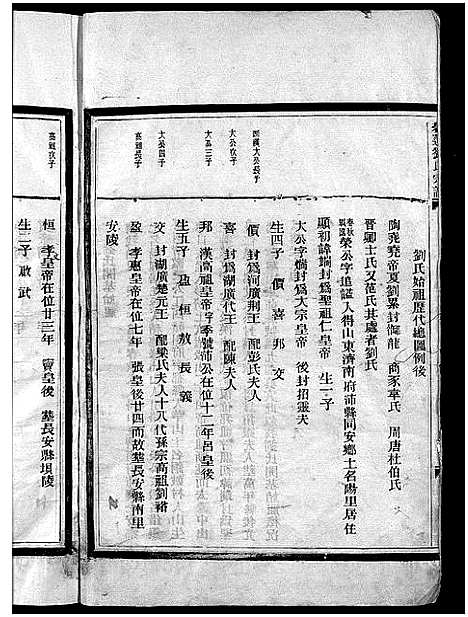 劉氏始祖歷代總圖例後
陶堯堯帝夏劉累封御龍 商家韋氏 周唐杜伯氏
晉卿士氏又范氏其處者劉氏
榮公字追謚人得山東濟南府沛縣同安鄉土名陽里居住
顯初諱煓封為聖祖仁皇帝 生一子
太公字煓封為大宗皇帝 後封招靈夫
生四子 債 喜 邦 交
債 封為河廣荆王 配彭氏夫人
喜 封為湖廣代王 配陳夫人
邦 漢高祖皇帝字季號沛公在位十二年呂皇后
生五子 盈 恒 敖 長 義
交 封湖廣楚元王 配梁氏夫人十八代孫宗高祖劉裕
盈 孝惠皇帝在位七年 張皇後廿四而故塟長安縣南里
安陵
太公次子
太公三子
太公四子
高祖長子
高祖次子
恒 孝皇帝在位廿三年 竇皇後 塟長安縣壩陵
生二子 啟 武